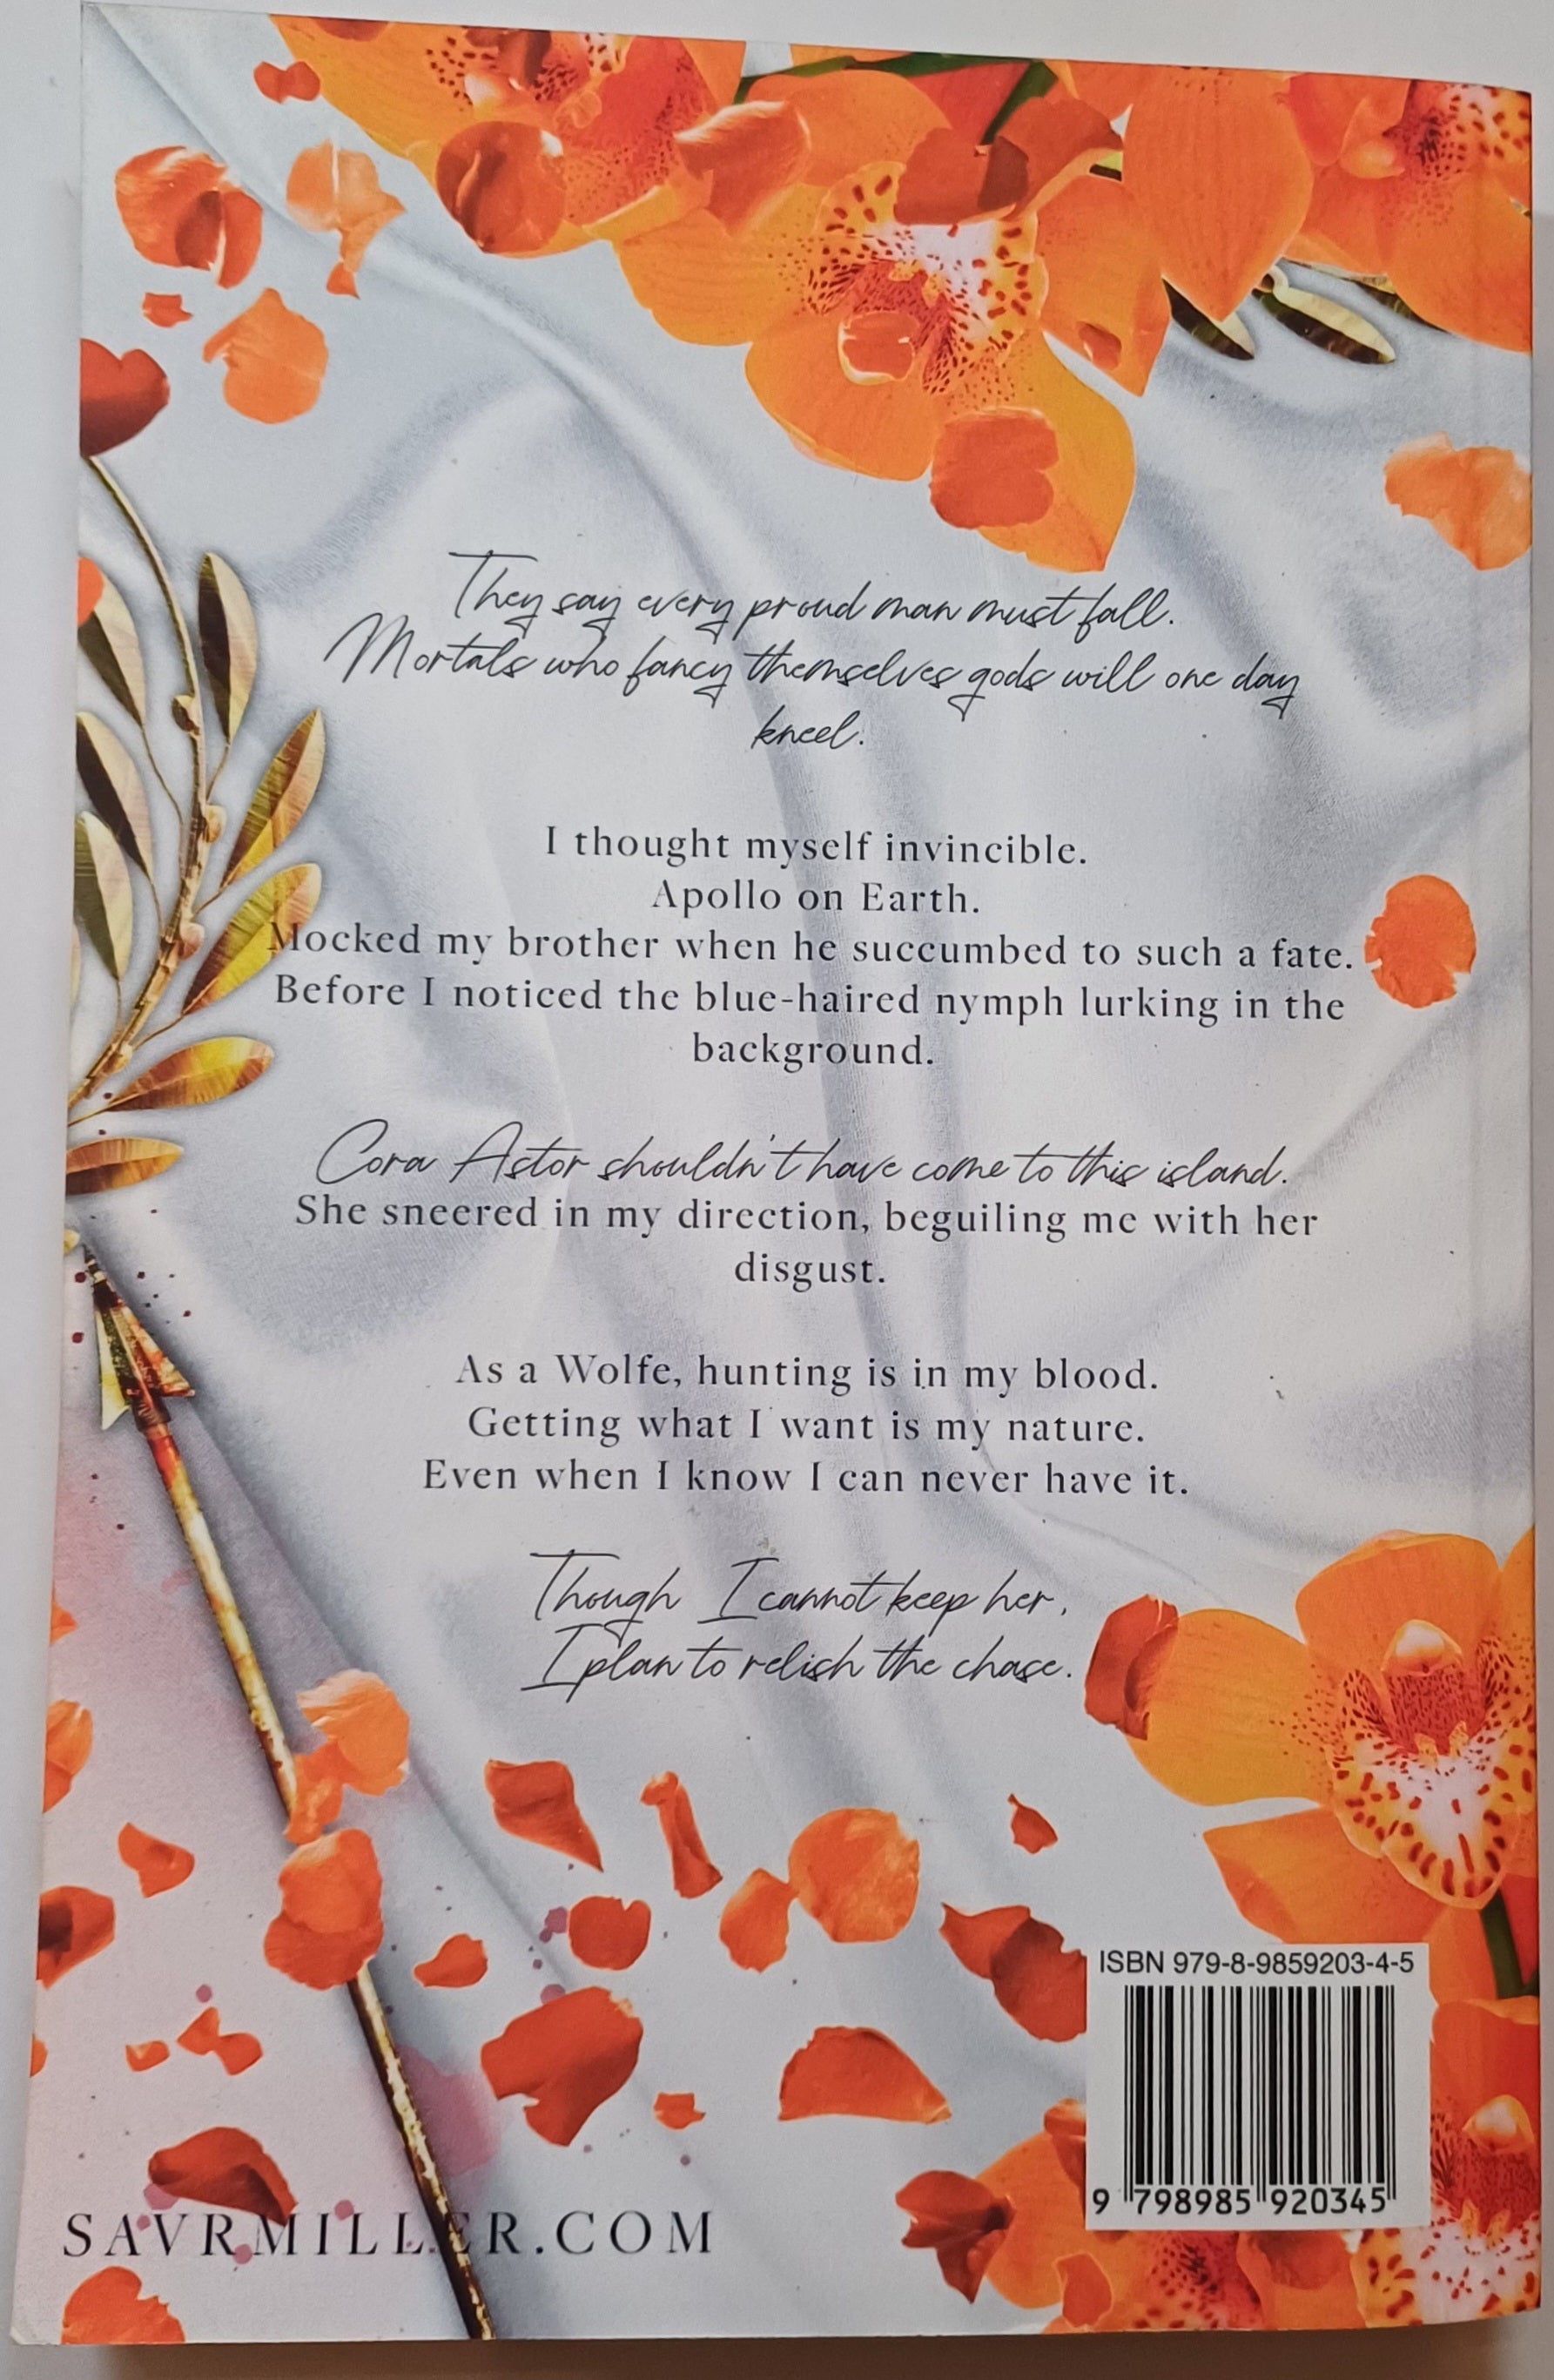 They say every proud man must fall.
Mortals who fancy themselves gods will one day
kneel.
I thought myself invincible.
Apollo on Earth.
Mocked my brother when he succumbed to such a fate.
Before I noticed the blue-haired nymph lurking in the
background.
Cora Astor shouldn't have come to this island.
She sneered in my direction, beguiling me with her
disgust.
As a Wolfe, hunting is in my blood.
Getting what I want is my nature.
Even when I know I can never have it.
Though I cannot keep her,
I plan to relish the chase.
ISBN 979-8-9859203-4-5
9 798985 920345
SAVRMILLER.COM